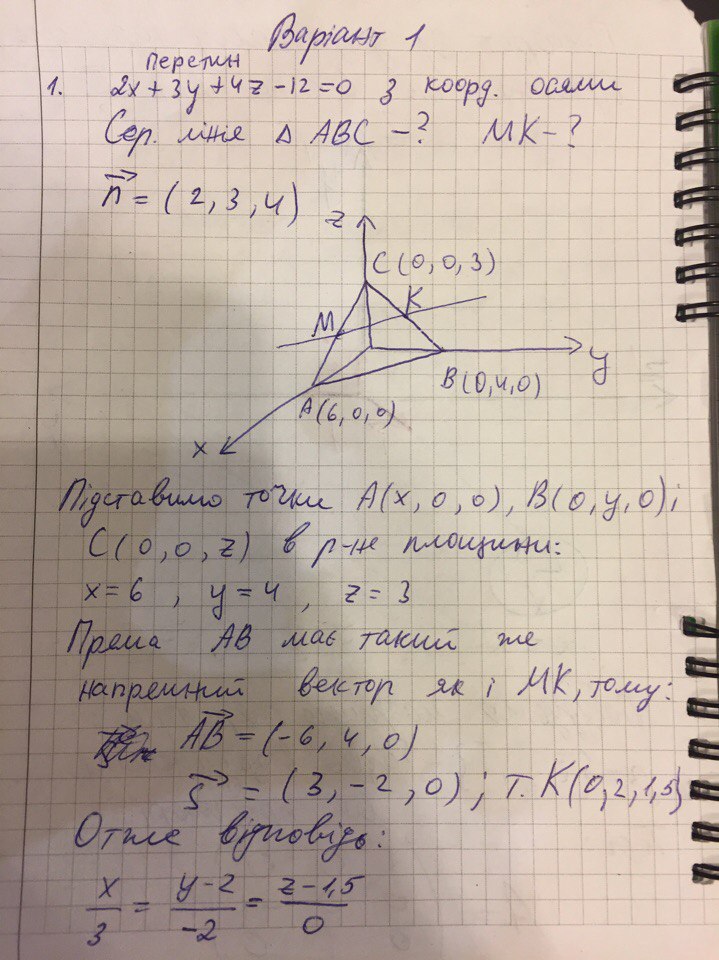 Варіант 1
перетин
1. 2x + 3y + 4z - 12 = 0 з коорд. осями
Сер. лінія Δ ABC - ? MK - ?
n = (2, 3, 4)
z
C (0, 0, 3)
K
M
y
B (0, 4, 0)
A (6, 0, 0)
x
Підставимо точки A(x, 0, 0), B(0, y, 0) і
C(0, 0, z) в р-не площини:
x = 6, y = 4, z = 3
Пряма AB має такий же
напрямний вектор як і MK, тому:
AB = (-6, 4, 0)
s = (3, -2, 0); т. K(0, 2, 1,5)
Отже відповідь:
x/3 = (y-2)/-2 = (z-1,5)/0